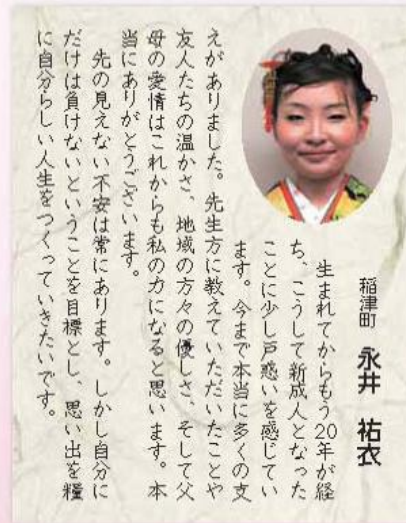 稲津町 永井 祐衣
生まれてからもう20年が経
ち、こうして新成人となった
ことに少し戸惑いを感じてい
ます。今まで本当に多くの支
えがありました。先生方に教えていただいたことや
友人たちの温かさ、地域の方々の優しさ、そして父
母の愛情はこれからも私の力になると思います。本
当にありがとうございます。
先の見えない不安は常にあります。しかし自分に
だけは負けないということを目標とし、思い出を糧
に自分らしい人生をつくっていきたいです。